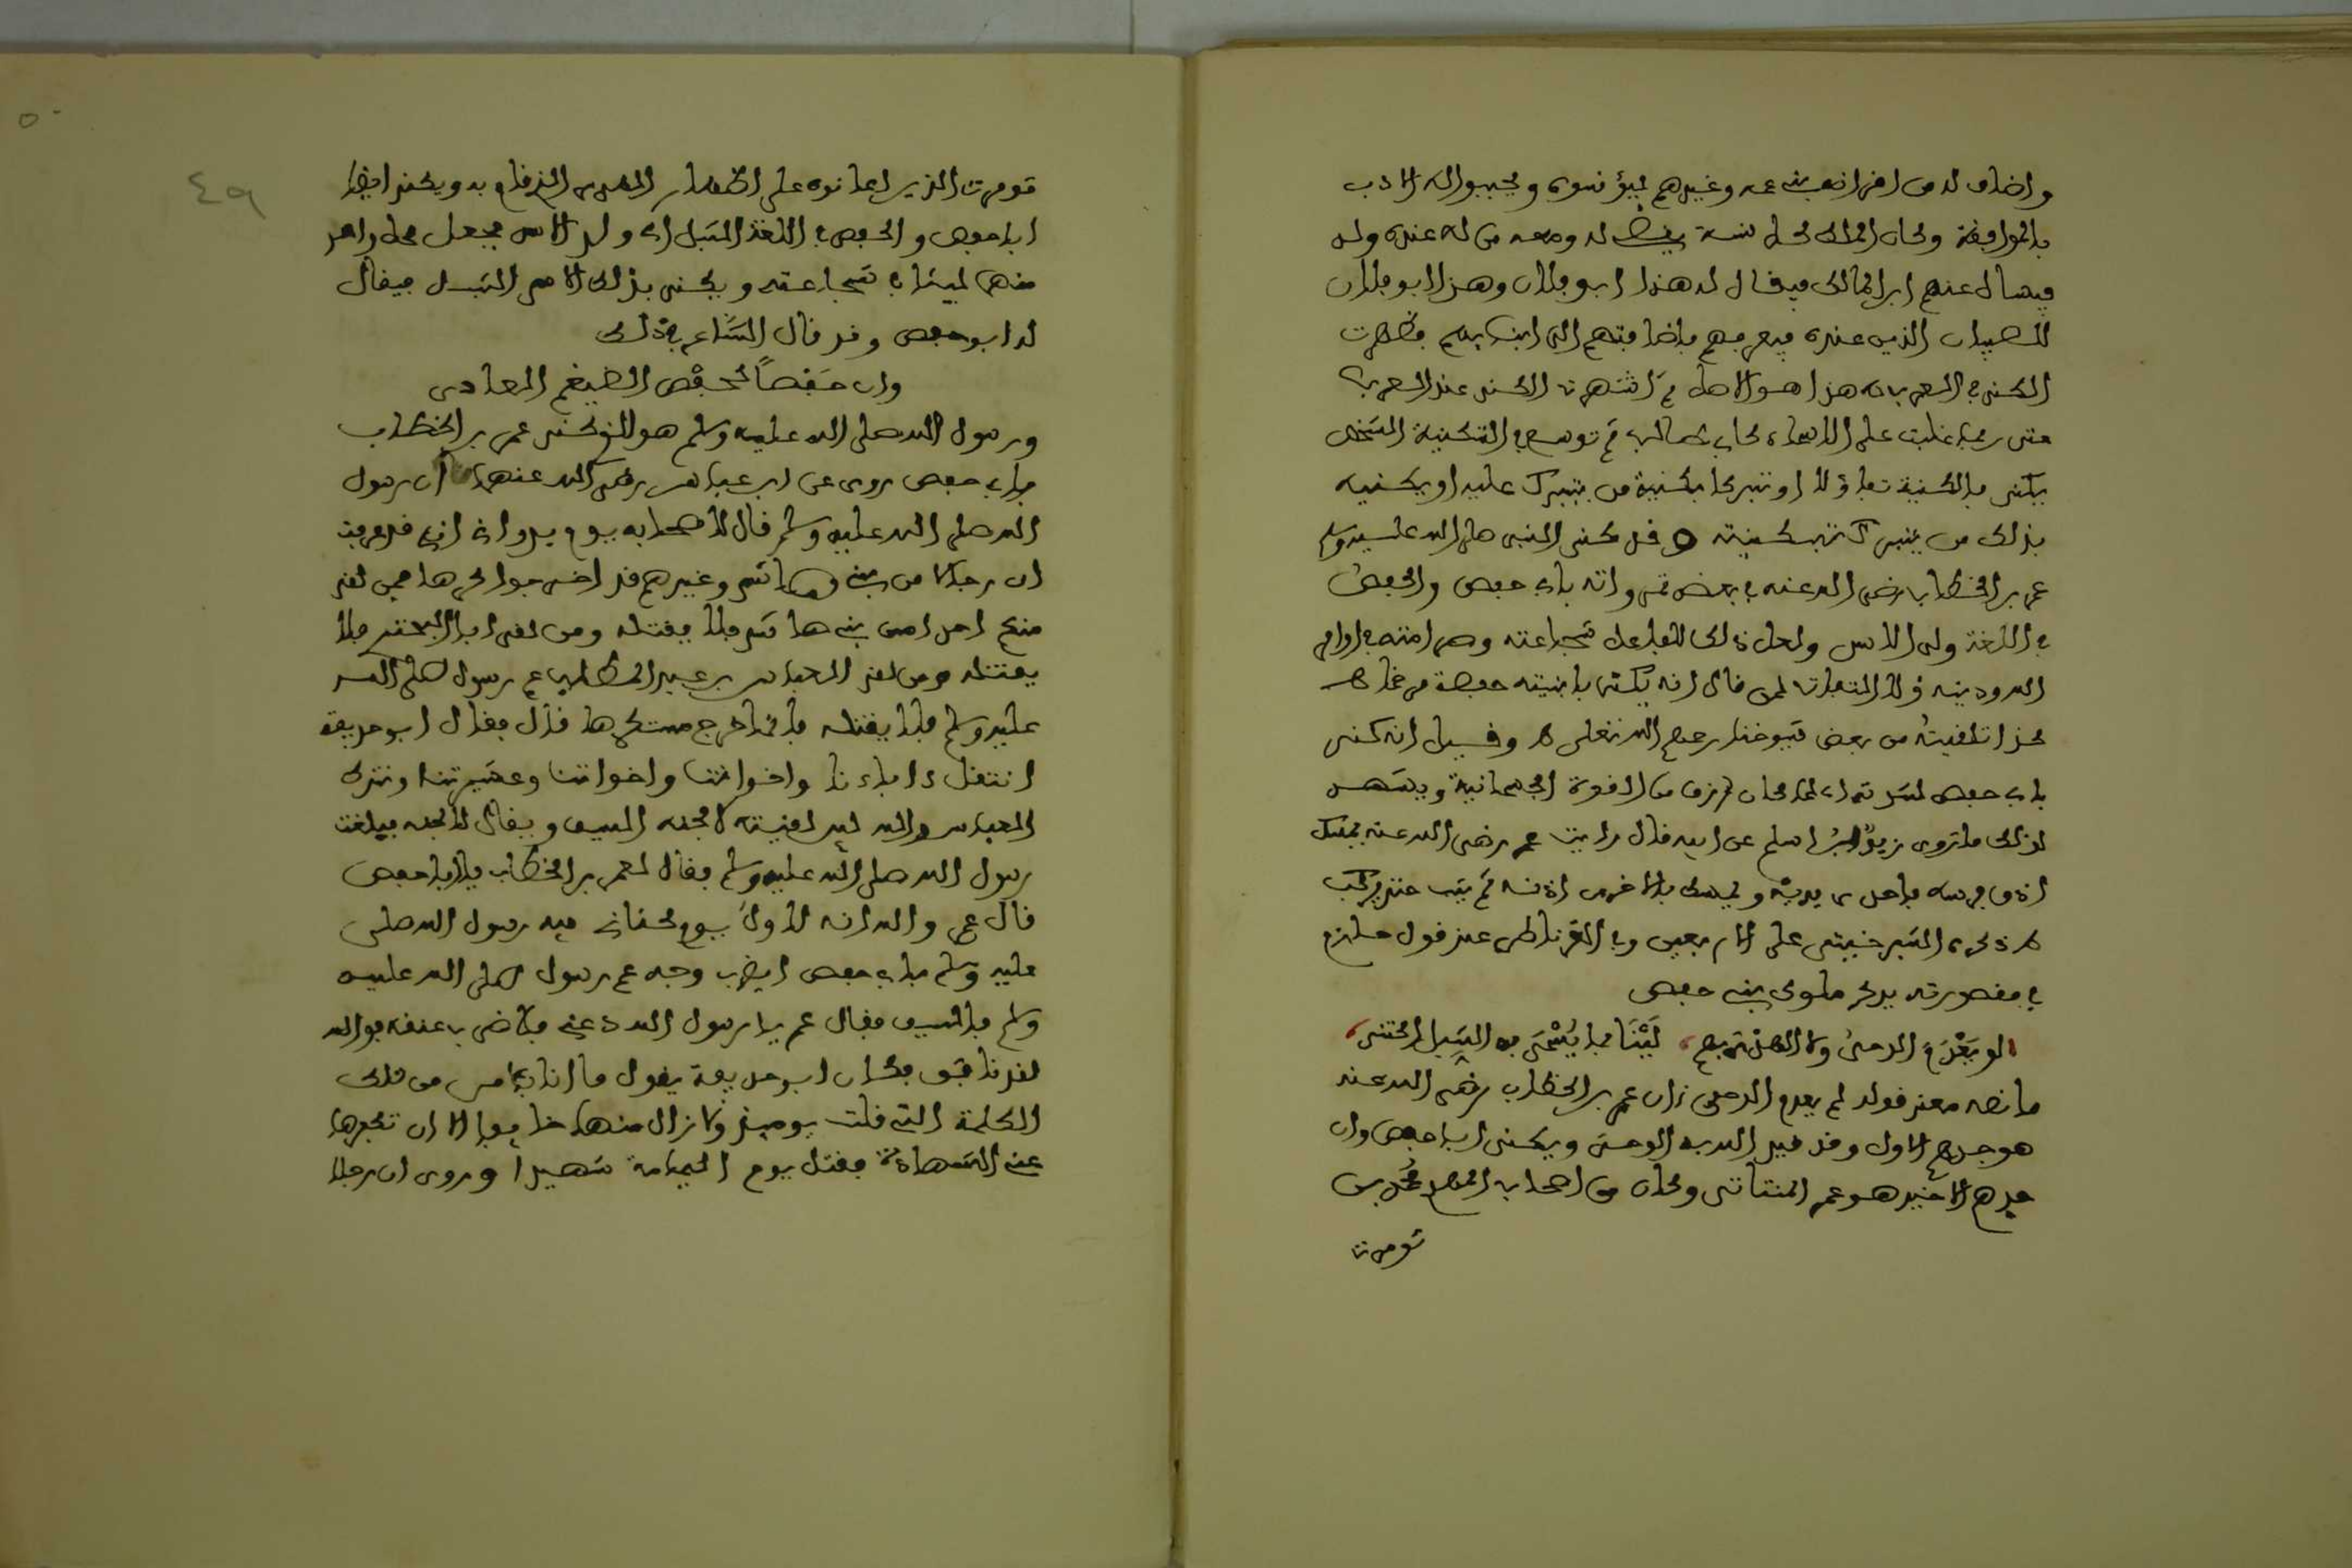 واضاف له من اقرانه بني عمه وغيرهم ليؤنسوه ويحببوا له الادب
بالموافقة وكان الملك كل سنة له ومعه من له عنده ولد
فيسال عنهم ابن الملك فيقال له هذا ابو فلان وهذا ابو فلان
للصبيان الذين عنده فيعرفهم باضافتهم الى ابنايهم فظهرت
الكنى في العرب هذا هو الاصل ثم اشتهرت الكنى عند العرب
حتى ربما غلبت على الاسماء كابي طالب ثم توسع في التكنية الشخص
يكنى بالكنية تفاؤلا او تبركا بكنية من يتبرك عليه او يكنيه
بذلك من يتبرك بتكنيته وقد كنى النبي صلى الله عليه وسلم
عمر بن الخطاب رضي الله عنه في بعض غزواته بابي حفص والحفص
في اللغة ولد الاسد ولعل ذلك للفاعل شجاعته وصرامته في اوامر
الله ودينه ولا التفات لمن قال انه يكنى بابنته حفصة
كذا تلقيته من بعض شيوخنا رحمهم الله تعلى ه وقيل انه كنى
بابي حفص لشدته اي لما كان رزق من القوة الجسمانية ويشهد
لذلك ما روى زيد ابن اسلم عن ابيه قال رايت عمر رضي الله عنه يمسك
اذن فرسه باحدى يديه ويمسك بالاخرى اذنه ثم يثب حتى يركب
ه ذكره الشبرخيتي على الاربعين وفي الغرناطي عند قول حازم
في مقصورته يذكر ملوك بني حفص
لو يعدم الدهر ليثا فما يحمى به الشبل الحتى
ما نصه معنى قوله لم يعدم الدهر ان عمر بن الخطاب رضي الله عنه
هو جدهم الاول وقد قيل الوحش ويكنى ابا حفص وان
جدهم الاخير هو عمر الهنتاتي وكان من اصحاب المهدي محمد بن
تومرت
تومرت الذين اعانوه على اظهار الذي قام به ويكنى ايضا
ابا حفص والحفص في اللغة الشبل اي ولد الاسد فجعل كل واحد
منهما ليثا في شجاعته ويكنى بذلك الاسم الشبل فيقال
له ابو حفص وقد قال الشاعر في ذلك
وان حفصا كحفص الضيغم العادى
ورسول الله صلى الله عليه وسلم هو الذي كنى عمر بن الخطاب
بابي حفص روى عن ابن عباس رضي الله عنهما ان رسول
الله صلى الله عليه وسلم قال لاصحابه يوم بدر اني قد عرفت
ان رجالا من بني هاشم وغيرهم قد اخرجوا كرها فمن لقي
منكم احدا من بني هاشم فلا يقتله ومن لقي ابا البختري فلا
يقتله ومن لقي العباس بن عبد المطلب عم رسول صلى الله
عليه وسلم فلا يقتله فانما خرج مستكرها قال فقال ابو حذيفة
انقتل ءاباءنا واخواننا واخواتنا وعشيرتنا ونترك
العباس والله لين لقيته لالحمنه السيف ويقال لالجمنه فبلغت
رسول الله صلى الله عليه وسلم فقال لعمر بن الخطاب يا ابا حفص
قال عمر والله انه لاول يوم كناني فيه رسول الله صلى
عليه وسلم بابي حفص ايضرب وجه عم رسول صلى الله عليه
وسلم بالسيف فقال عمر يا رسول الله دعني فلاضرب عنقه فوالله
لقد نافق فكان ابو حذيفة يقول ما انا بآمن من تلك
الكلمة التي قلت يوميذ ولا نزال منها خايفا الا ان تكفرها
عني الشهادة فقتل يوم اليمامة شهيدا وروى ان رجلا
٤٩
٥٠